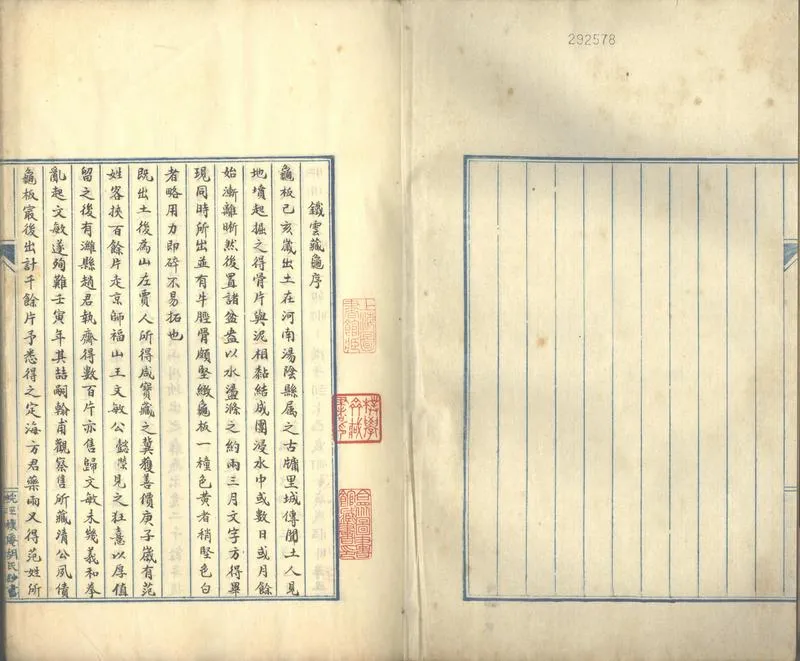 292578
鐵雲藏龜序
龜板己亥歲出土在河南湯陰縣屬之古牖里城傳聞土人見
地墳起掘之得骨片與泥相黏結成團浸水中或數日或月餘
始漸離晰然後置諸盆盎以水盪滌之約兩三月文字方得畢
現同時所出並有牛脛骨頗堅緻龜板一種色黃者稍堅色白
者略用力即碎不易拓也
既出土後為山左賈人所得咸寶藏之冀獲善價庚子歲有范
姓客挾百餘片走京師福山王文敏公懿榮見之狂憙以厚值
留之後有濰縣趙君執齋得數百片亦售歸文敏未幾義和拳
亂起文敏遂殉難壬寅年其喆嗣翰甫觀察售所藏清公夙債
龜板冣後出計千餘片予悉得之定海方君藥雨又得范姓所
胡氏鈔書